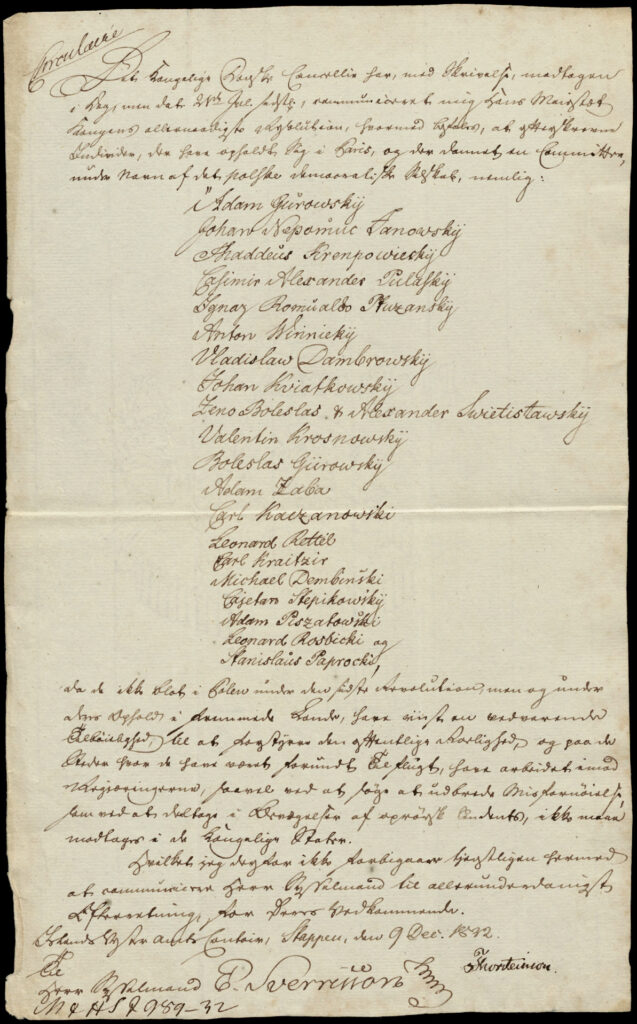 Circulaire
Det Kongelige Danske Cancellie har, med Skrivelse, modtagen
i Dag, men dat 21de Jul. sidstl., communiceret mig Hans Majestæt
Kongens allernaadigste Resolution, hvorved befales, at efterskrevne
Individer, der have opholdt sig i Paris, og der dannet en Committee,
under Navn af det polske democratiske Selskab, nemlig:
"Adam Gůrowskÿ
Johan Nepomůc Janowskÿ
Thaddeůs Krenpowieckÿ
Casimir Alexander Pulafskÿ
Ignaz Romualdo Pluzanskÿ
Anton Winnickÿ
Vladislaw Dambrowskÿ
Johan Kviatkowskÿ
Zeno Boleslas & Alexander Swietislawskÿ
Valentin Krosnowskÿ
Boleslas Gůrowskÿ
Adam Zaba
Carl Kaczanowski
Leonard Rettel
Carl Kraitzir
Michael Dembinski
Cajetan Stepikowskÿ
Adam Piszatowski
Leonard Rosbicki og
Stanislaus Paprocki,
da de ikke blot i Polen under den sidste Revolution, men og under
deres Ophold i fremmede Lande, have viist en vedvarende
Tilbøielighed, til at forstyrre den offentlige Roelighed, og paa de
Steder hvor de have været forundt Tilflugt, have arbeidet imod
Regjeringerne, saavel ved at søge at udbrede Misfornøielse,
som ved at deeltage i Bevægelser af oprørsk Tendents, ikke maae
modtages i de Kongelige Stater.
Hvilket jeg derfor ikke forbigaaer tjenstligen hermed
at communicere Herr Sysselmand til allerunderdanigst
Efterretning, for Deres Vedkommende.
Islands Vester Amts Contoir, Stappen, den 9 Dec. 1832.
Thorsteinson.
Til
Herr Sysselmand E. Sverrisson